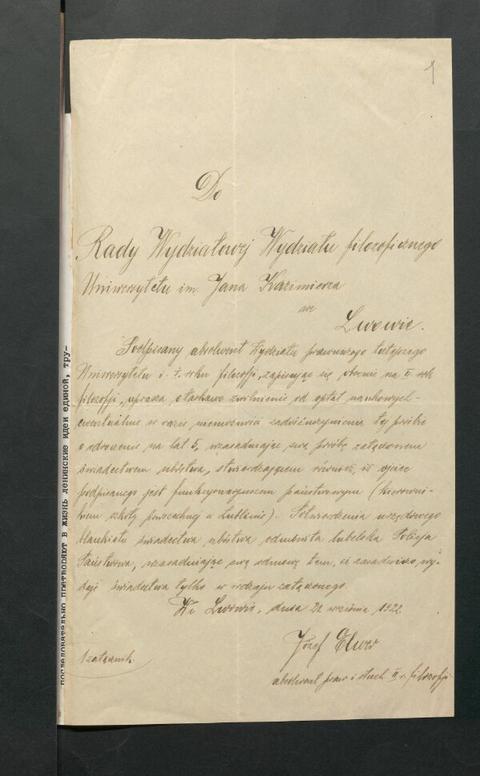 1
Do
Rady Wydziałowej Wydziału filozoficznego
Uniwersytetu im. Jana Kazimierza
we
Lwowie.
Podpisany absolwent Wydziału prawniczego tutejszego
Uniwersytetu i I. roku filozofji, zapisując się obecnie na II rok
filozofji, uprasza o łaskawe zwolnienie od opłat naukowych –
ewentualnie w razie niemożności zadośćuczynienia tej prośbie
o odroczenie na lat 5, uzasadniając swą prośbę załączonem
świadectwem ubóstwa, stwierdzającem również, iż ojciec
podpisanego jest funkcjonarjuszem państwowym (kierowni-
kiem szkoły powszechnej w Lublinie). Potwierdzenia urzędowego
blankietu świadectwa ubóstwa odmówiła lubelska Policja
Państwowa, uzasadniając swą odmowę tem, iż zasadniczo wy-
daje świadectwa tylko w rodzaju załączonego.
We Lwowie, dnia 21 września 1922.
1 załącznik.
Józef
absolwent praw i słuch. II r. filozofji
последовательно претворяют в жизнь ленинские идеи единой, тру-